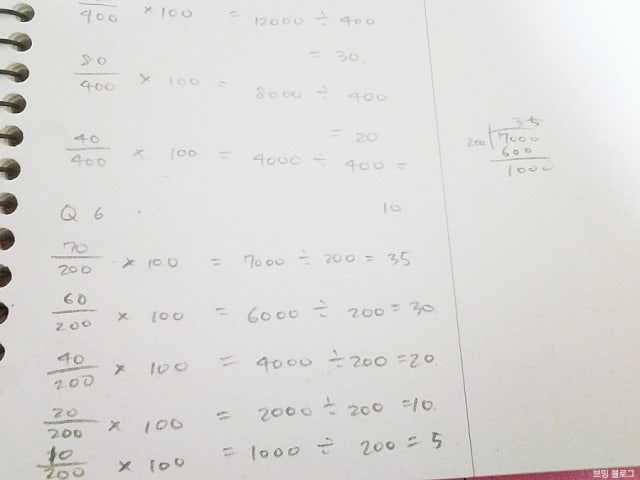 /400 × 100 = 12000 ÷ 400
= 30.
80/400 × 100 = 8000 ÷ 400
= 20
40/400 × 100 = 4000 ÷ 400 =
10
Q 6
70/200 × 100 = 7000 ÷ 200 = 35
60/200 × 100 = 6000 ÷ 200 = 30.
40/200 × 100 = 4000 ÷ 200 = 20
20/200 × 100 = 2000 ÷ 200 = 10.
10/200 × 100 = 1000 ÷ 200 = 5
35
200 7000
600
1000
브밍 블로그